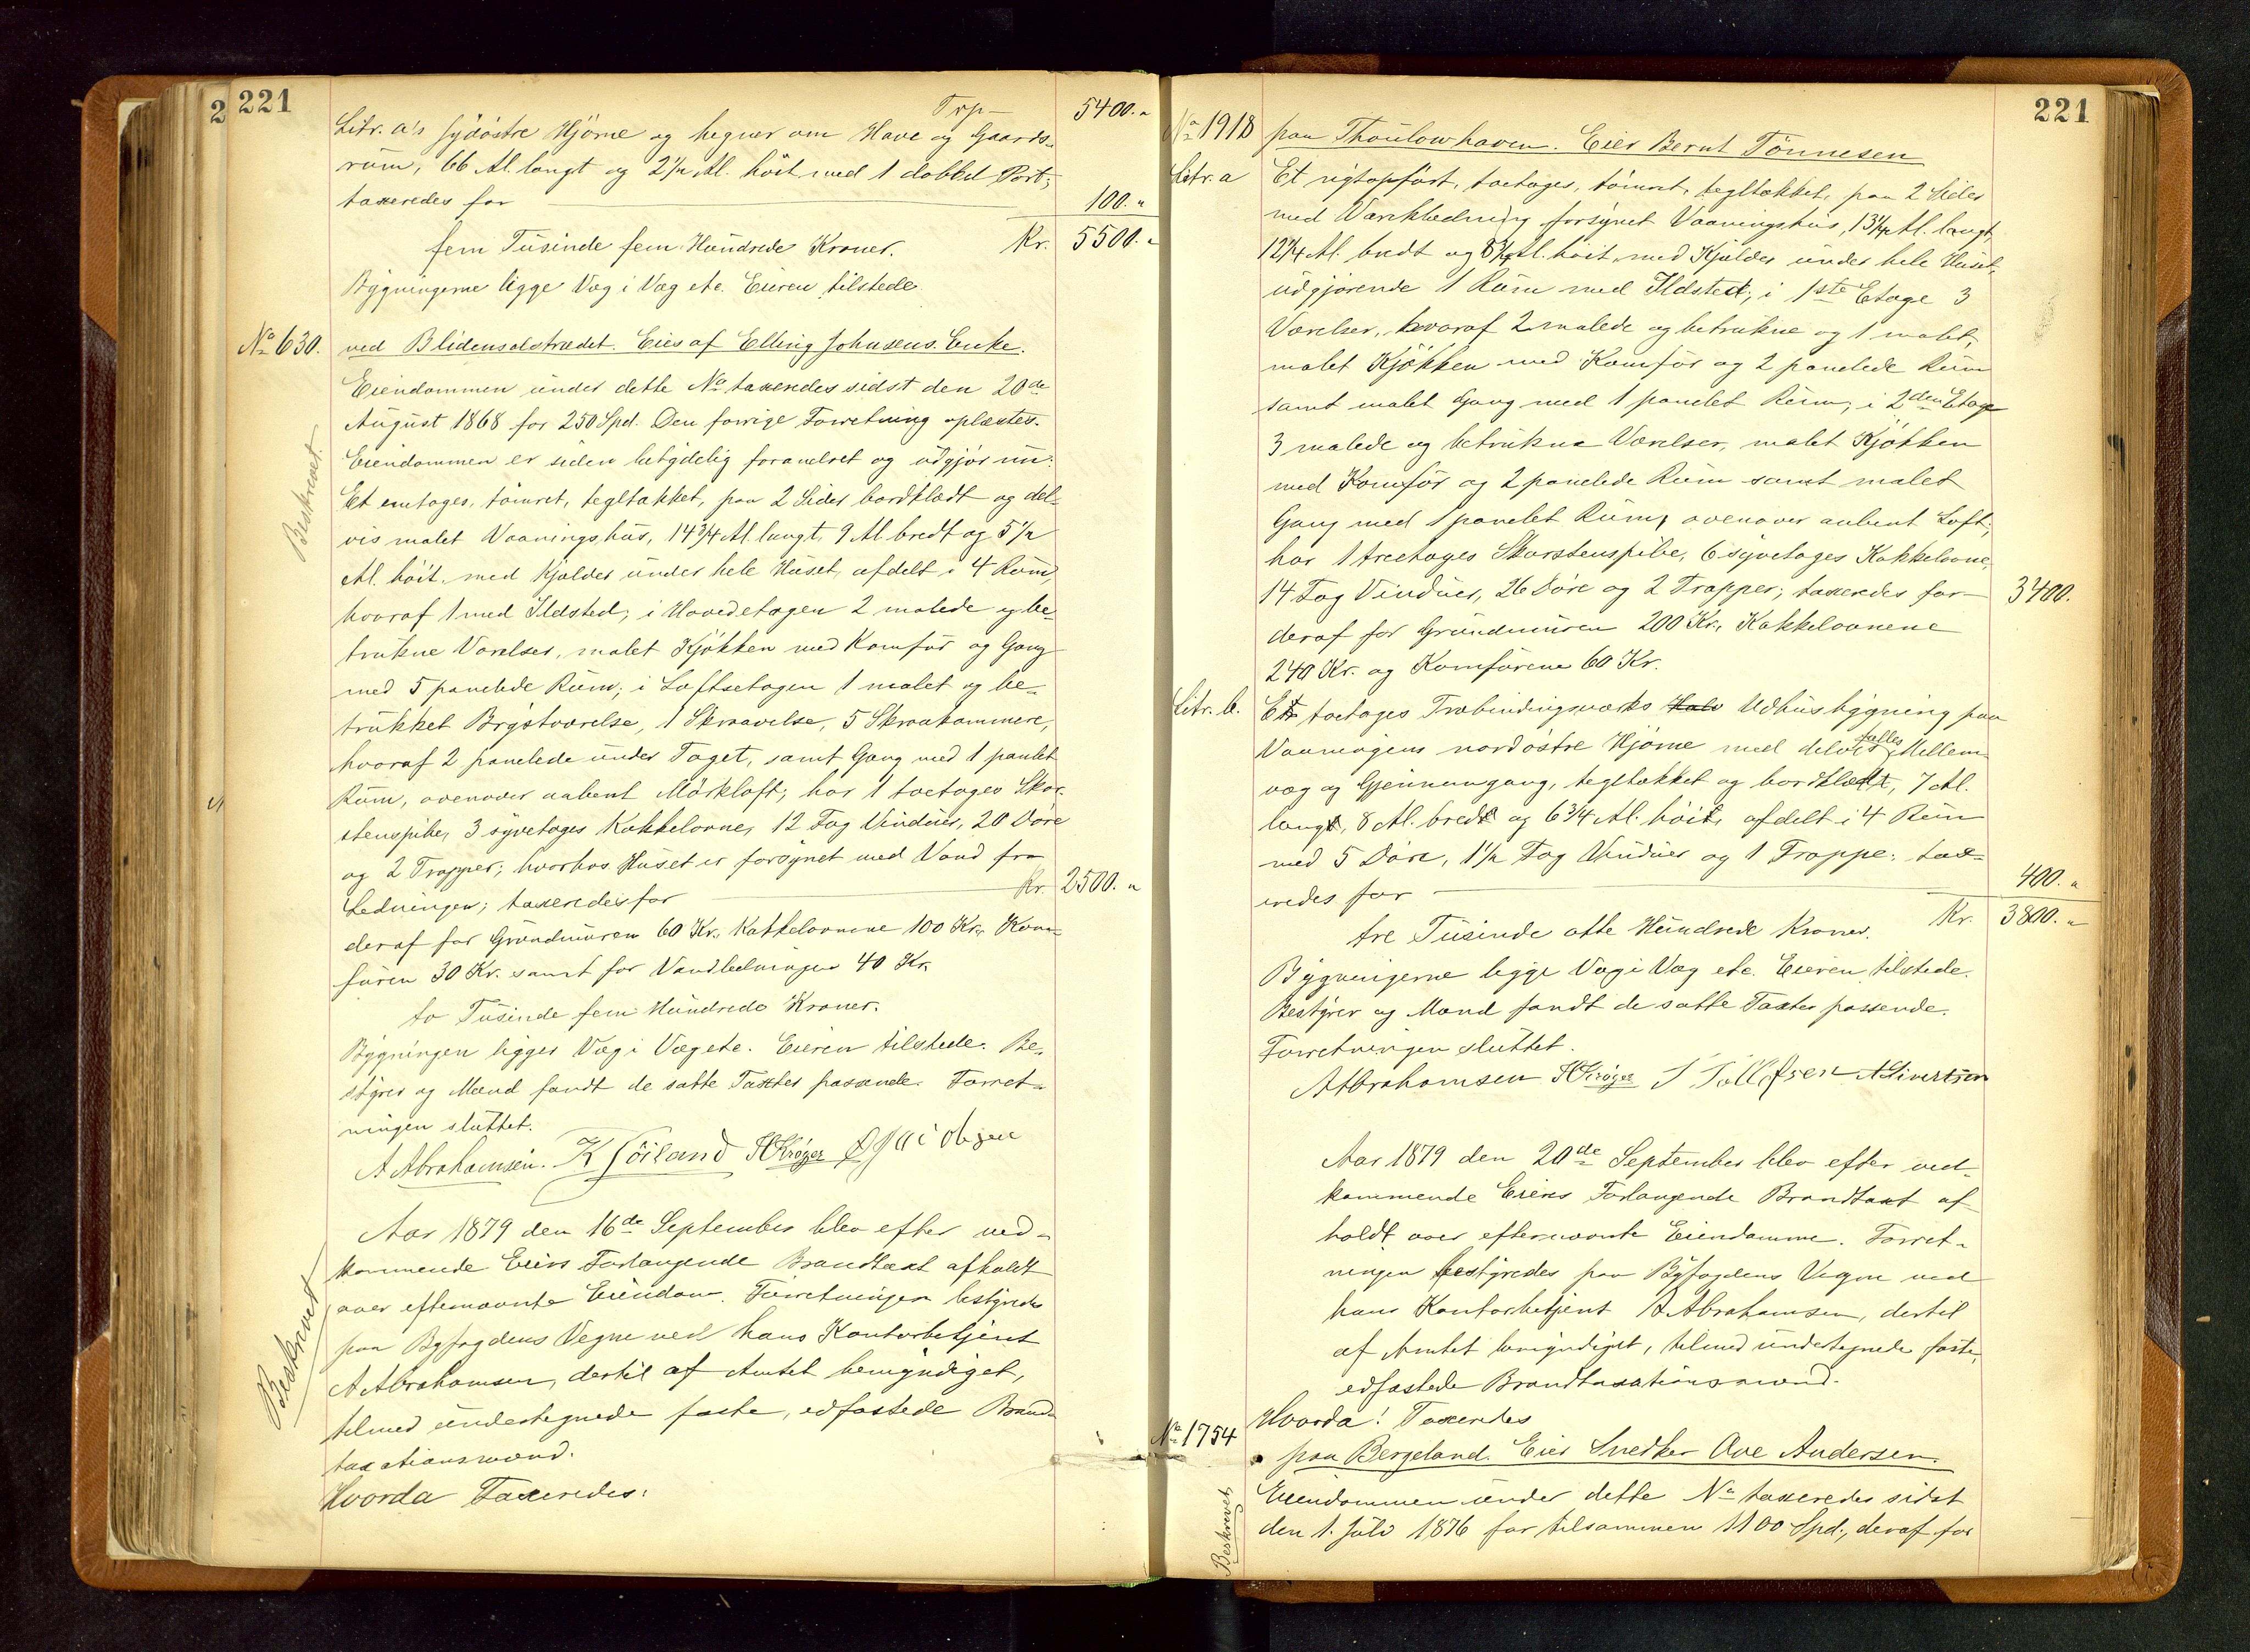 221
Trp— 5400.„
Litr. a's sydöstre Hjörne og hegner om Have og Gaards-
rüm, 66 Al. langt og 2 1/2 Al. höit med 1 dobbel Port;
taxeredes for 100.„
fem Tüsinde fem Hündrede Kroner. Kr. 5500.„
Bÿgningerne ligge Væg i Væg etc. Eieren tilstede.
No 630. ved Blidensolstrædet. Eies af Elling Johnsens Enke.
Eiendommen ünder dette No taxeredes sidst den 20de
Aügüst 1868 for 250 Spd. Den forrige Forretning oplæstes.
Beskrevet.
Eiendommen er siden betÿdelig forandret og üdgjör nü:
Et enetages, tömret, tegltækket, paa 2 Sider bordklædt og del-
vis malet Vaaningshüs, 14 3/4 Al. langt, 9 Al. bredt og 5 1/2
Al. höit, med Kjælder ünder hele Hüset, afdelt i 4 Rüm,
hvoraf 1 med Ildsted; i Hovedetagen 2 malede og be-
trükne Værelser, malet Kjökken med Komfür og Gang
med 5 panelede Rüm; i Loftsetagen 1 malet og be-
trükket Brÿstværelse, 1 Skraavelse, 5 Skraakammere,
hvoraf 2 panelede ünder Taget, samt Gang med 1 panlet
Rüm, ovenover aabent Mörkloft; har 1 toetages Skor-
stenspibe, 3 sÿvetages Kakkelovne, 12 Fag Vindüer, 20 Döre
og 2 Trapper; hvorhos Hüset er forsÿnet med Vand fra
Ledningen; taxeredes for Kr. 2500.„
deraf for Gründmüren 60 Kr., Kakkelovnene 100 Kr., Kom-
füren 30 Kr. samt for Vandledningen 40 Kr.
to Tüsinde fem Hündrede Kroner.
Bÿgningen ligger Væg i Væg etc. Eieren tilstede. Be-
stÿrer og Mænd fandt de satte Taxter passende. Forret-
ningen slüttet.
A Abrahamsen. K Söiland H Kröger
Aar 1879 den 16de September blev efter ved-
kommende Eiers Forlangende Brandtaxt afholdt
over efternævnte Eiendom. Forretningen bestÿredes
Beskrevet
paa Bÿfogdens Vegne ved hans Kontorbetjent
A Abrahamsen, dertil af Amtet bemÿndiget,
tilmed ündertegnede faste, edfæstede Brand-
taxationsmænd.
Hvorda Taxeredes:
221
No 1918 paa Thoulowhaven. Eier Bernt Tönnesen
Litr. a Et nÿtopfört, toetages, tömret, tegltækket, paa 2 Sider
med Værkklædning forsÿnet Vaaningshüs, 13 1/4 Al. langt,
12 1/4 Al. bredt og 8 1/4 Al. höit, med Kjælder ünder hele Hüset,
üdgjörende 1 Rüm med Ildsted; i 1ste Etage 3
Værelser, hvoraf 2 malede og betrükne og 1 malet,
malet Kjökken med Komfür og 2 panelede Rüm
samt malet Gang med 1 panelet Rüm; i 2den Etage
3 malede og betrükne Værelser, malet Kjökken
med Komfür og 2 panelede Rüm samt malet
Gang med 1 panelet Rüm, ovenover aabent Loft;
har 1 treetages Skorstenspibe, 6 sÿvetages Kakkelovne,
14 Fag Vindüer, 26 Döre og 2 Trapper; taxeredes for— 3400.
deraf for Gründmüren 200 Kr., Kakkelovnene
240 Kr. og Komfürene 60 Kr.
Litr. b. Et toetages Træbindingsværks Halv Udhüsbÿgning paa
Vaaningens nordöstre Hjörne med delvis fælles Mellem-
væg og Gjennemgang, tegltækket og bordklædt, 7 Al.
langt, 8 Al. bredt og 6 3/4 Al. höit, afdelt i 4 Rüm
med 5 Döre, 1 1/2 Fag Vindüer og 1 Trappe; taxe-
redes for 400.„
tre Tüsinde otte Hündrede Kroner. Kr. 3800.„
Bÿgningerne ligge Væg i Væg etc. Eieren tilstede.
Bestÿrer og Mænd fandt de satte Taxter passende.
Forretningen slüttet.
A Abrahamsen H Kröger T Tollefsen A Sivertsen
Aar 1879 den 20de September blev efter ved-
kommende Eieres Forlangende Brandtaxt af-
holdt over efternævnte Eiendomme. Forret-
ningen bestÿredes paa Bÿfogdens Vegne ved
hans Kontorbetjent A Abrahamsen, dertil
af Amtet bemÿndiget, tilmed ündertegnede faste,
edfæstede Brandtaxationsmænd.
Hvorda! Taxeredes
No 1754 paa Bergeland. Eier Snedker Ove Andersen.
Eiendommen ünder dette No taxeredes sidst
Beskrevet
den 1. Jüli 1876 for tilsammen 1100 Spd., deraf for